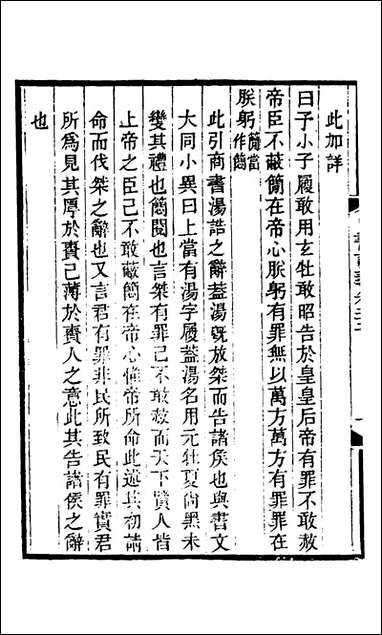 此加詳
曰予小子履敢用玄牡敢昭告於皇皇后帝有罪不敢赦
帝臣不蔽簡在帝心朕躬有罪無以萬方萬方有罪罪在
朕躬簡當作𥳑
此引商書湯誥之辭蓋湯旣放桀而告諸侯也與書文
大同小異曰上當有湯字履蓋湯名用元牡夏尚黑未
變其禮也簡閱也言桀有罪己不敢赦而天下賢人皆
上帝之臣己不敢蔽簡在帝心惟帝所命此述其初請
命而伐桀之辭也又言君有罪非民所致民有罪實君
所爲見其厚於責己薄於責人之意此其告諸侯之辭
也